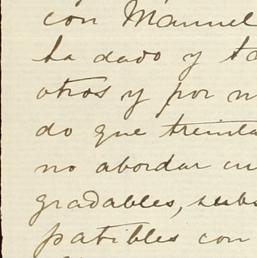 con Manuel
ha dado y ta
otros y por n
do que treinta
no abordar cu
gradables, subs
patibles con